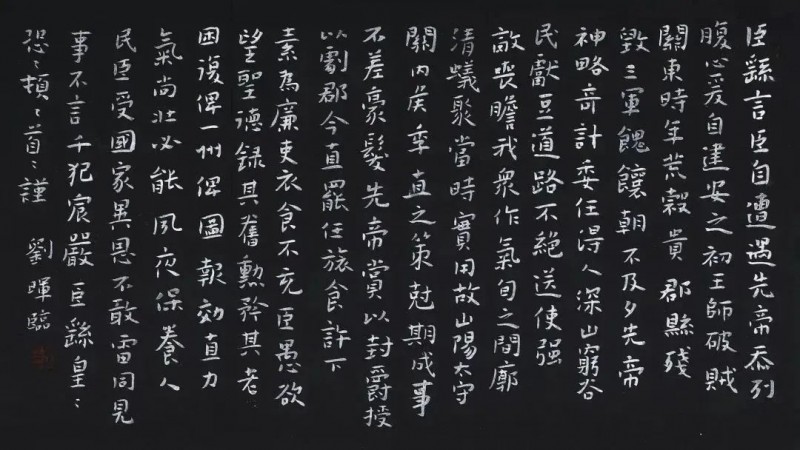 臣繇言臣自遭遇先帝忝列
腹心爰自建安之初王師破賊
關東時年荒穀貴郡縣殘
毀三軍餽饟朝不及夕先帝
神略奇計委任得人深山窮谷
民獻豆道路不絕送使強
敵喪膽我衆作氣旬之間廓
清蟻聚當時實用故山陽太守
關內侯季直之策尅期成事
不差豪髮先帝賞以封爵授
以劇郡今直罷任旅食許下
素爲廉吏衣食不充臣愚欲
望聖德錄其舊勳矜其老
困復俾一州俾圖報効直力
氣尚壯必能夙夜保養人
民臣受國家異恩不敢雷同見
事不言干犯宸嚴臣繇皇〻
恐〻頓〻首〻謹 劉暉臨